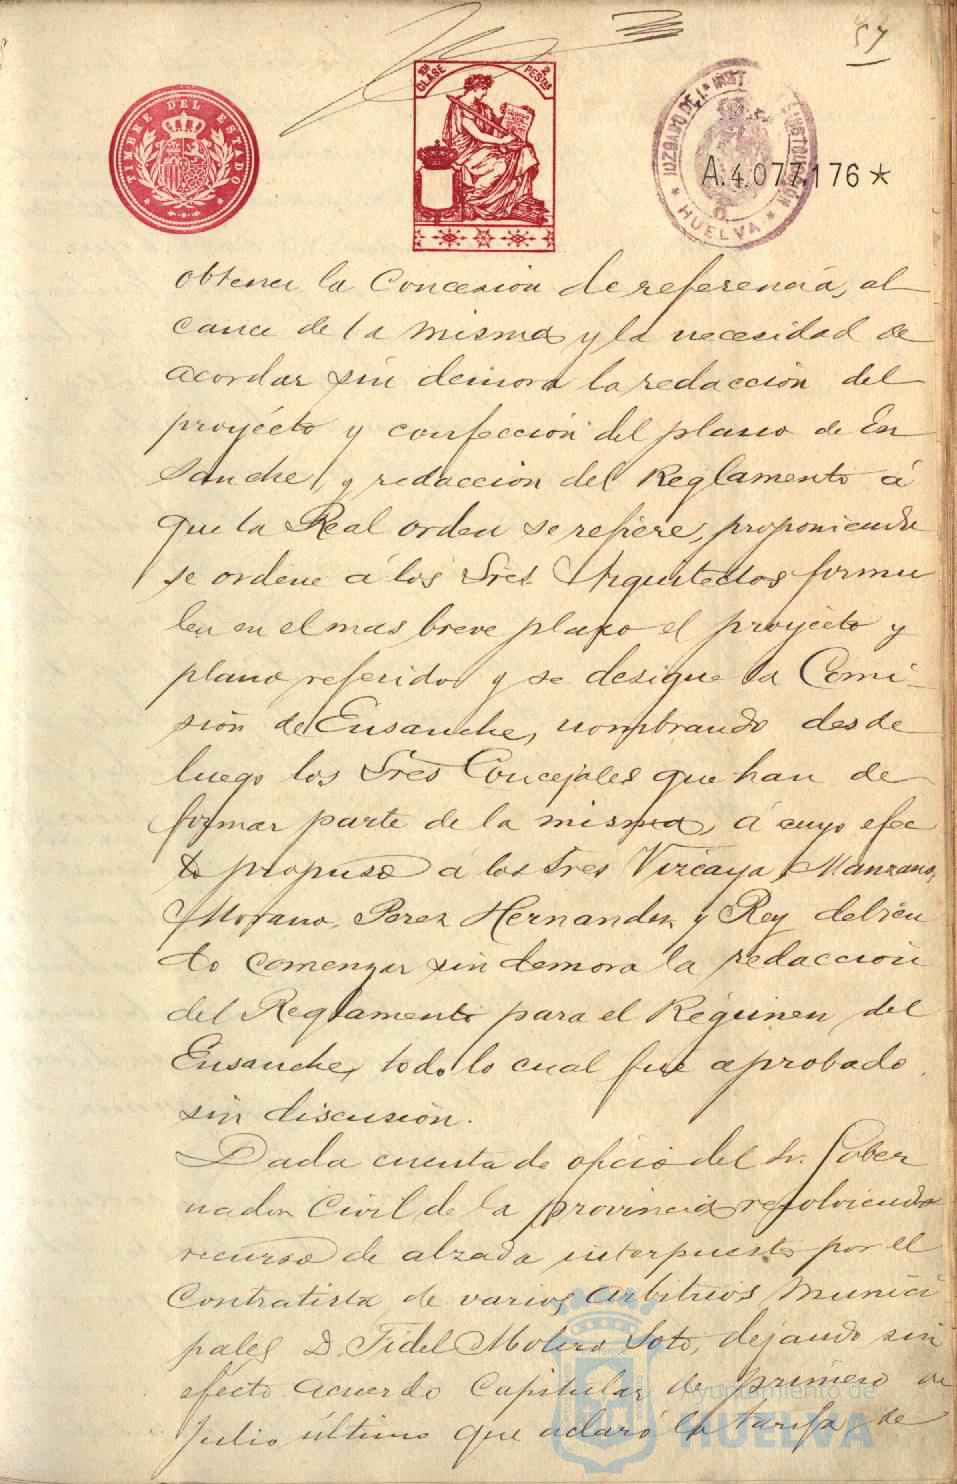 57
TIMBRE DEL ESTADO
10ª CLASE 2 PESTAS
JUZGADO DE 1ª INST HUELVA
A.4.077.176*
obtener la concesion de referencia, al
cance de la misma y la necesidad de
acordar sin demora la redacción del
proyécto y confección del plano de En
sanche, y redaccion del Reglamento á
que la Real orden se refiere, proponiendo
se ordene á los Sres Arquitectos formu
len en el mas breve plazo el proyécto y
plano referido y se designe la Comi-
sión de Ensanche, nombrando desde
luego los Sres Concejales que han de
formar parte de la misma, á cuyo efec
to propuso á los Sres Vizcaya, Manzano,
Morano, Perez Hernandez y Rey debien
do comenzar sin demora la redacción
del Reglamento para el Régimen del
Ensanche, todo lo cual fué aprobado
sin discusión.
Dada cuenta de oficio del Sr. Gober
nador Civil de la provincia resolviendo
recurso de alzada interpuesto por el
Contratista de varios arbitrios Munici
pales D. Fidel Molero Soto, dejando sin
efecto acuerdo Capitular de primero de
Julio último que aclaró la tarifa de
Ayuntamiento de
HUELVA